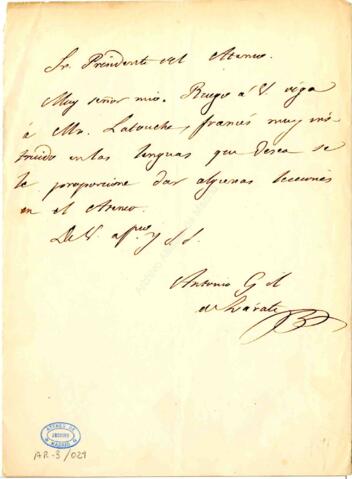 Sr. Presidente del Ateneo.
Muy señor mio. Ruego á V. oiga
á Mr. Latouche, francés muy ins
truido en las lenguas que desea se
le proporcione dar algunas lecciones
en el Ateneo.
De V. afmo. y S. S.
Antonio G il
de Zárate
ATENEO DE
MADRID
AR-3/029